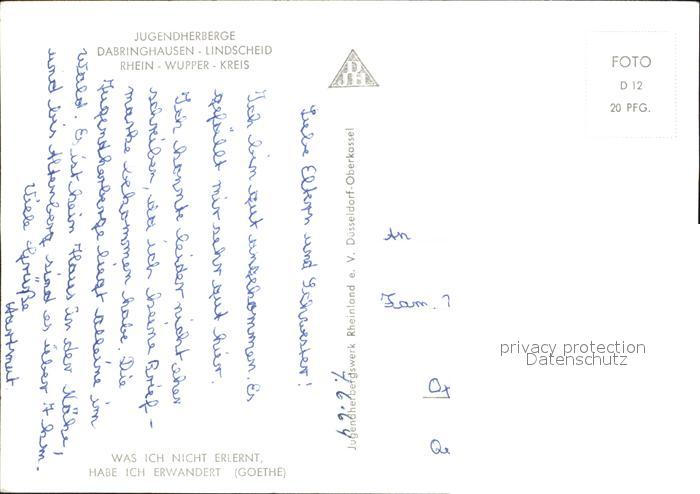 JUGENDHERBERGE
DABRINGHAUSEN - LINDSCHEID
RHEIN - WUPPER - KREIS
Liebe Eltern und Schwester!
Ich bin gut angekommen. Es
gefällt mir sehr gut hier.
Ich konnte leider nicht eher
schreiben, da ich keine Brief-
marke bekommen habe. Die
Jugendherberge liegt alleine im
Wald. Es ist kein Haus in der Nähe,
und bis Altenberg sind es über 7 km.
Viele Grüße
Hartmut
WAS ICH NICHT ERLERNT,
HABE ICH ERWANDERT (GOETHE)
Jugendherbergswerk Rheinland e. V. Düsseldorf-Oberkassel
FOTO
D 12
20 PFG.
An
Fam.
privacy protection
Datenschutz